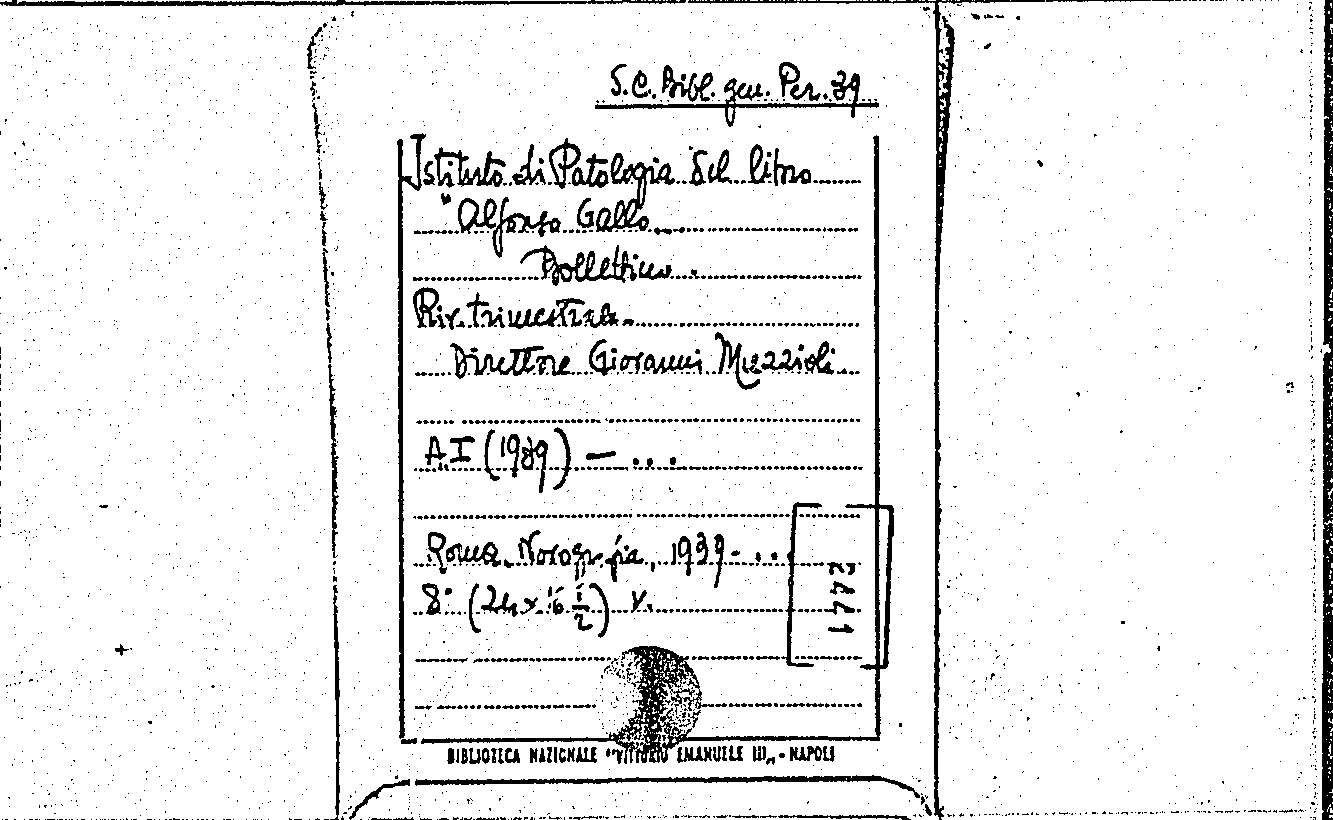 S.C. Bibl. gen. Per. 39
Istituto di Patologia del libro
"Alfonso Gallo
Bollettino.
Riv. trimestrale.
Direttore Giovanni Muzzioli.
A.I (1939) — ...
Roma, 1939 - ...
8° (24 x 16 1/2) v.
2441
BIBLIOTECA NAZIONALE "VITTORIO EMANUELE III„ - NAPOLI